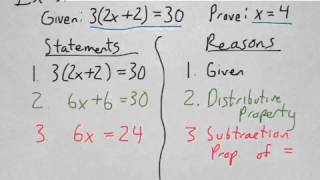 Given: 3(2x+2)=30 Prove: x=4
Statements Reasons
1. 3(2x+2)=30 1. Given
2. 6x+6=30 2. Distributive
Property
3. 6x=24 3. Subtraction
Prop. of =